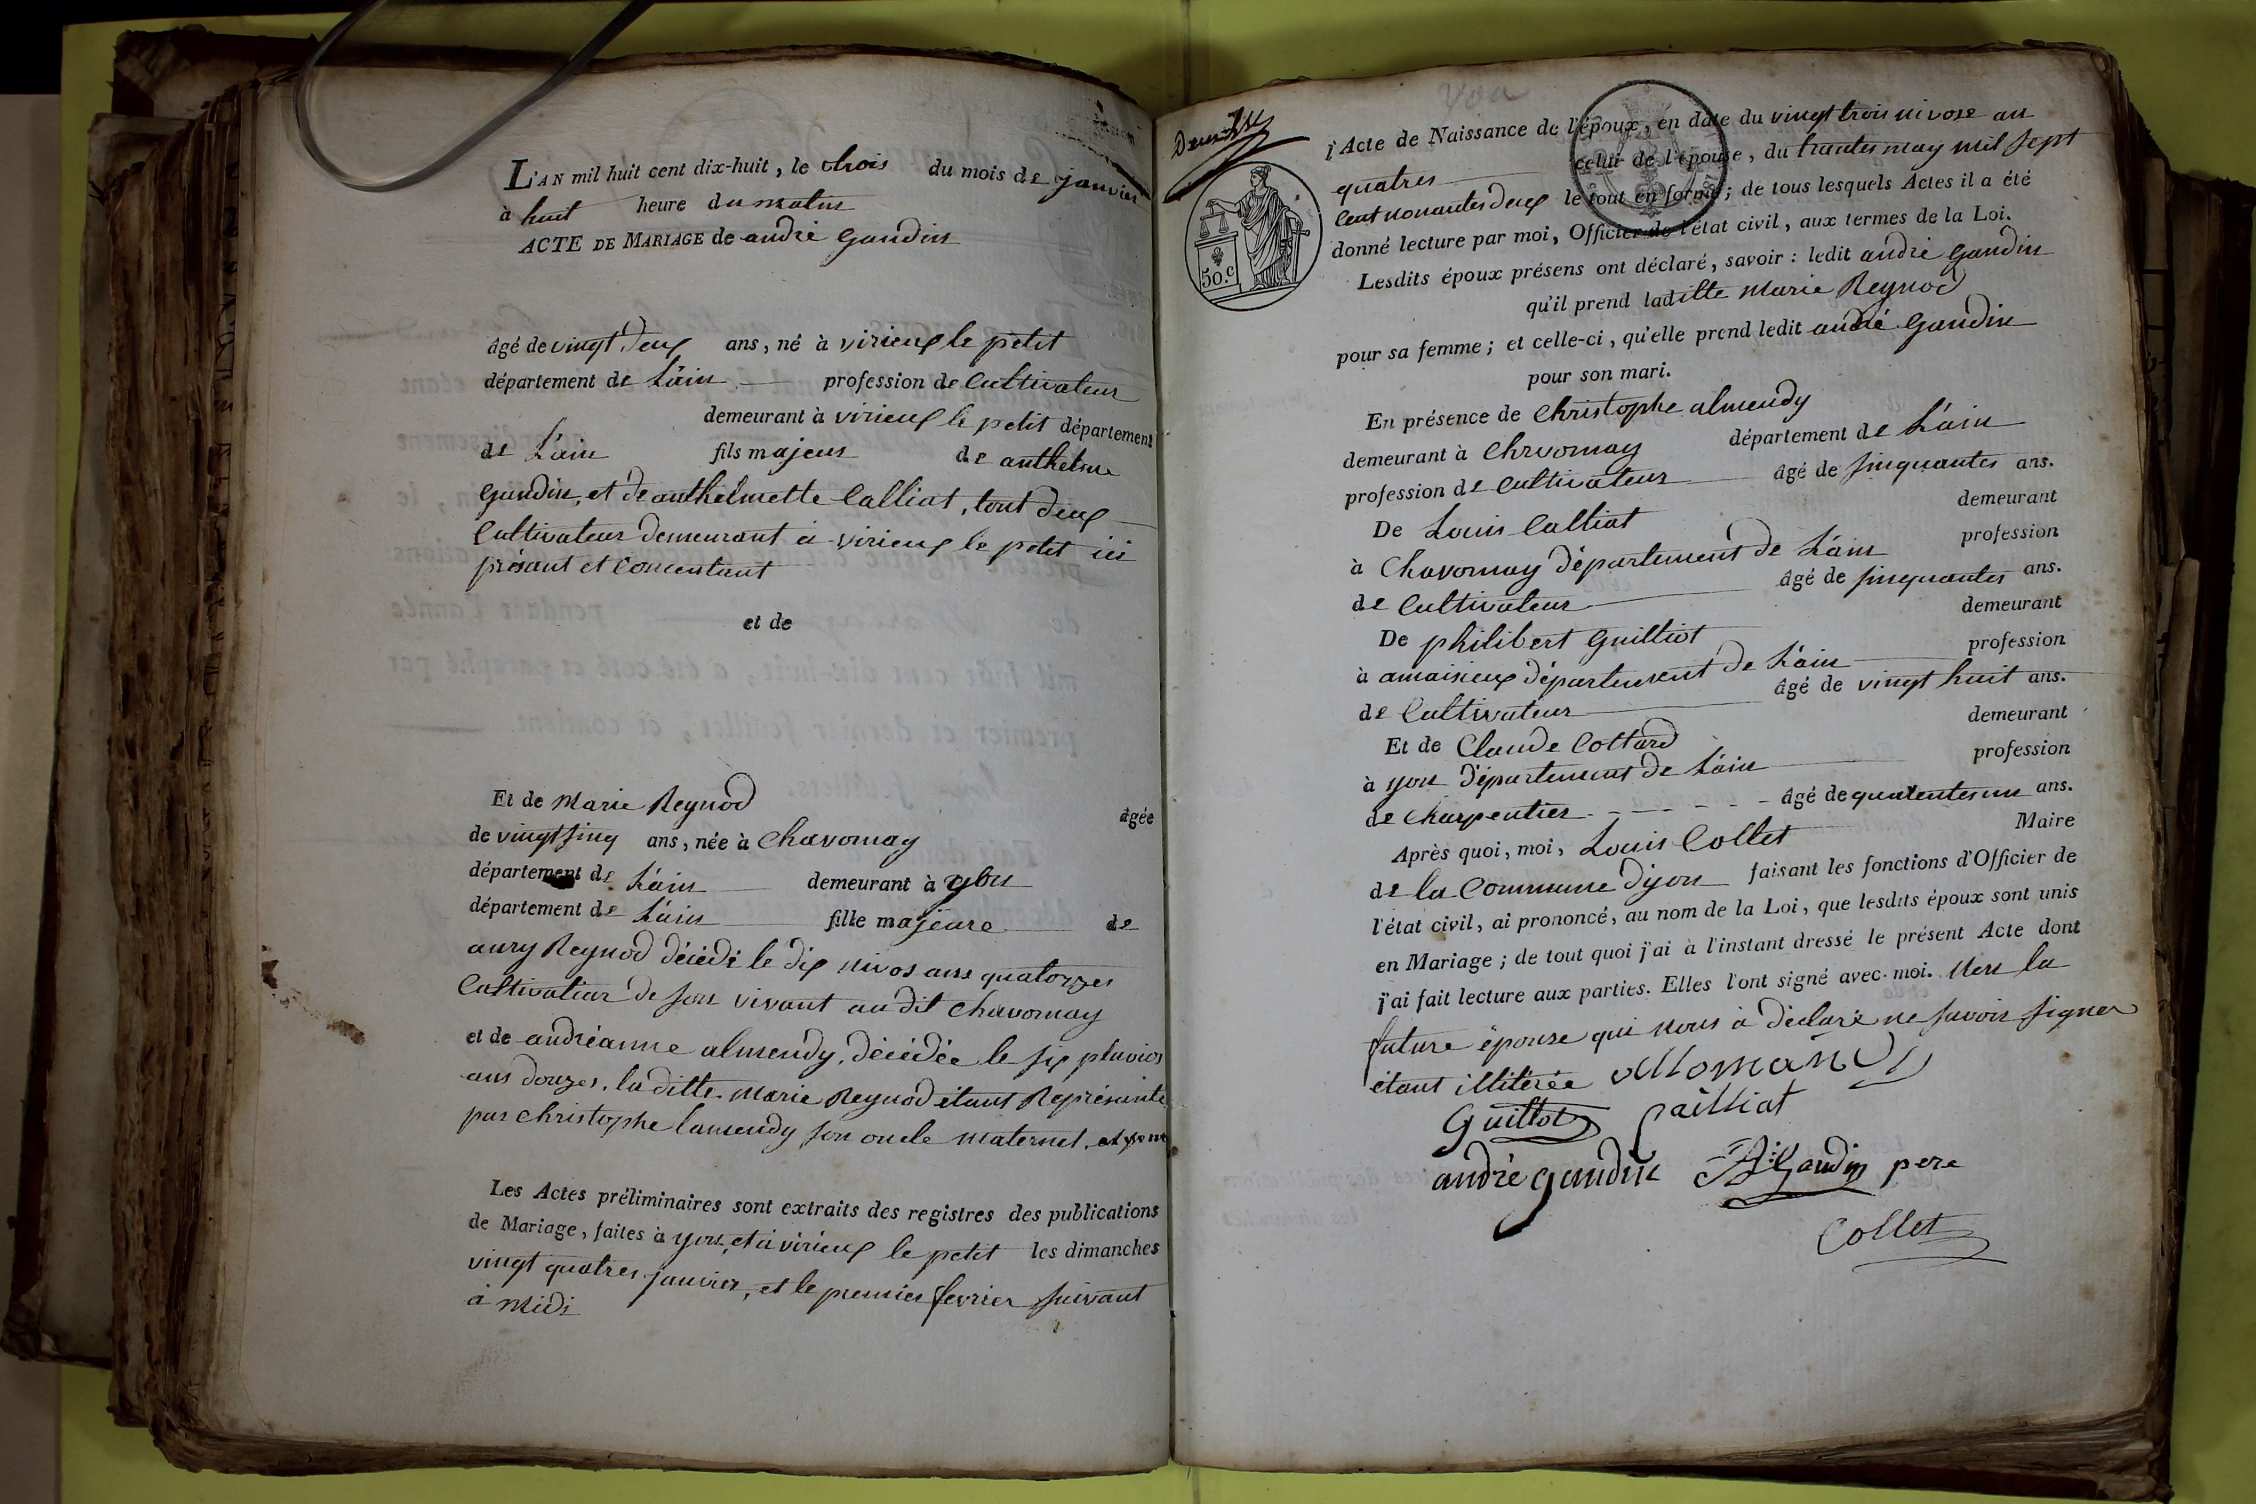 L'AN mil huit cent dix-huit, le trois du mois de janvier
à huit heure du matin
ACTE DE MARIAGE de andré gaudin
âgé de vingt deux ans, né à virieux le petit
département de L'ain profession de Cultivateur
demeurant à virieux le petit département
de L'ain fils majeur de anthelme
gaudin, et de anthelmette Calliat, tout deux
Cultivateur demeurant a virieux le petit ici
présant et Concentant
et de
Et de Marie Reynod âgée
de vingt sinq ans, née à Chavornay
département de L'ain demeurant à yon
département de L'ain fille majeure de
aury Reynod décédé le dix nivos ans quatorzes
Cultivatiar de son vivant au dit Chavornay
et de andréanne almendy, décédée le six pluvios
ans douzes. la ditte Marie Reynod étant Représenté
par Christophe lamendy son oncle maternel.
Les Actes préliminaires sont extraits des registres des publications
de Mariage, faites à yon, et à virieux le petit les dimanches
vingt quatres janvier, et le premier fevrier suivant
à midi
50.c
l'Acte de Naissance de l'époux, en date du vingt trois nivose an
quatres celui de l'épouse, du trentes may mil sept
Cent nonantes deux le tout en forme; de tous lesquels Actes il a été
donné lecture par moi, Officier de l'état civil, aux termes de la Loi.
Lesdits époux présens ont déclaré, savoir: ledit andré gaudin
qu'il prend laditte Marie Reynod
pour sa femme; et celle-ci, qu'elle prend ledit andré gaudin
pour son mari.
En présence de Christophe almendy
demeurant à Chrvornay département de L'ain
profession de Cultivateur âgé de sinquantes ans.
De Louis Calliat demeurant
à Chavornay département de L'ain profession
de Cultivateur âgé de sinquantes ans.
De philibert guilliot demeurant
à amaisieux département de L'ain profession
de Cultivateur âgé de vingt huit ans.
Et de Claude Cottard demeurant
à yon département de L'ain profession
de Charpentier âgé de quarentes un ans.
Après quoi, moi, Louis Collet Maire
de la Commune d'yon faisant les fonctions d'Officier de
l'état civil, ai prononcé, au nom de la Loi, que lesdits époux sont unis
en Mariage; de tout quoi j'ai à l'instant dressé le présent Acte dont
j'ai fait lecture aux parties. Elles l'ont signé avec moi. Non la
future épouse qui nous à déclaré ne savoir signer
étant illitérée
Guillot Cailliat
andré gaudin A. Gaudin pere
Collet